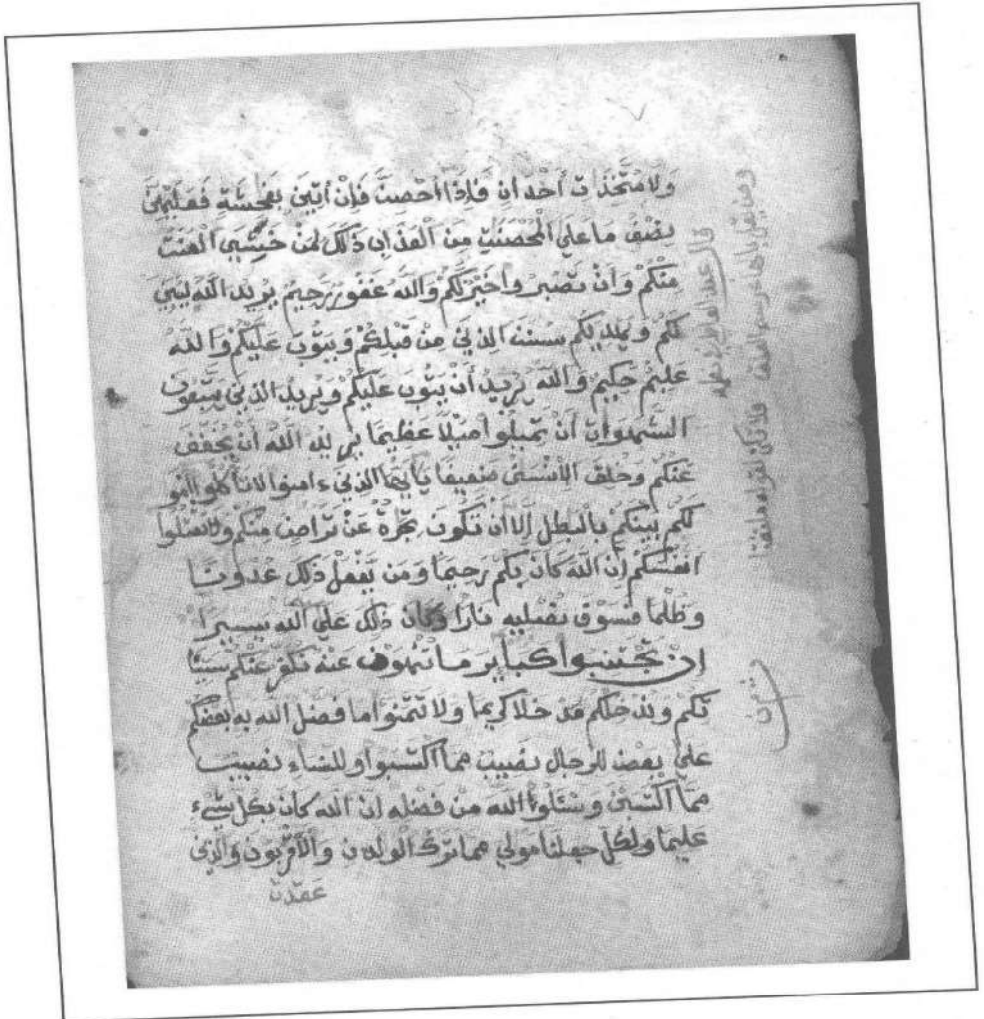 ولا متخذات أخدان فإذا أحصن فإن أتين بفحشة فعليهن
نصف ما على المحصنت من العذاب ذلك لمن خشي العنت
منكم وأن تصبروا خير لكم والله غفور رحيم يريد الله ليبين
لكم ويهديكم سنن الذين من قبلكم ويتوب عليكم والله
عليم حكيم والله يريد أن يتوب عليكم ويريد الذين يتبعون
الشهوات أن تميلوا ميلا عظيما يريد الله أن يخفف
عنكم وخلق الإنسن ضعيفا يأيها الذين ءامنوا لا تأكلوا أمو
لكم بينكم بالبطل إلا أن تكون تجرة عن تراض منكم ولا تقتلوا
أنفسكم إن الله كان بكم رحيما ومن يفعل ذلك عدونا
وظلما فسوف نصليه نارا وكان ذلك على الله يسيرا
إن تجتنبوا كبائر ما تنهون عنه نكفر عنكم سيئا
تكم وندخلكم مدخلا كريما ولا تتمنوا ما فضل الله به بعضكم
على بعض للرجال نصيب مما اكتسبوا وللنساء نصيب
مما اكتسبن وسئلوا الله من فضله إن الله كان بكل شيء
عليما ولكل جعلنا مولي مما ترك الولدن والأقربون والذين
عقدت
ثمن